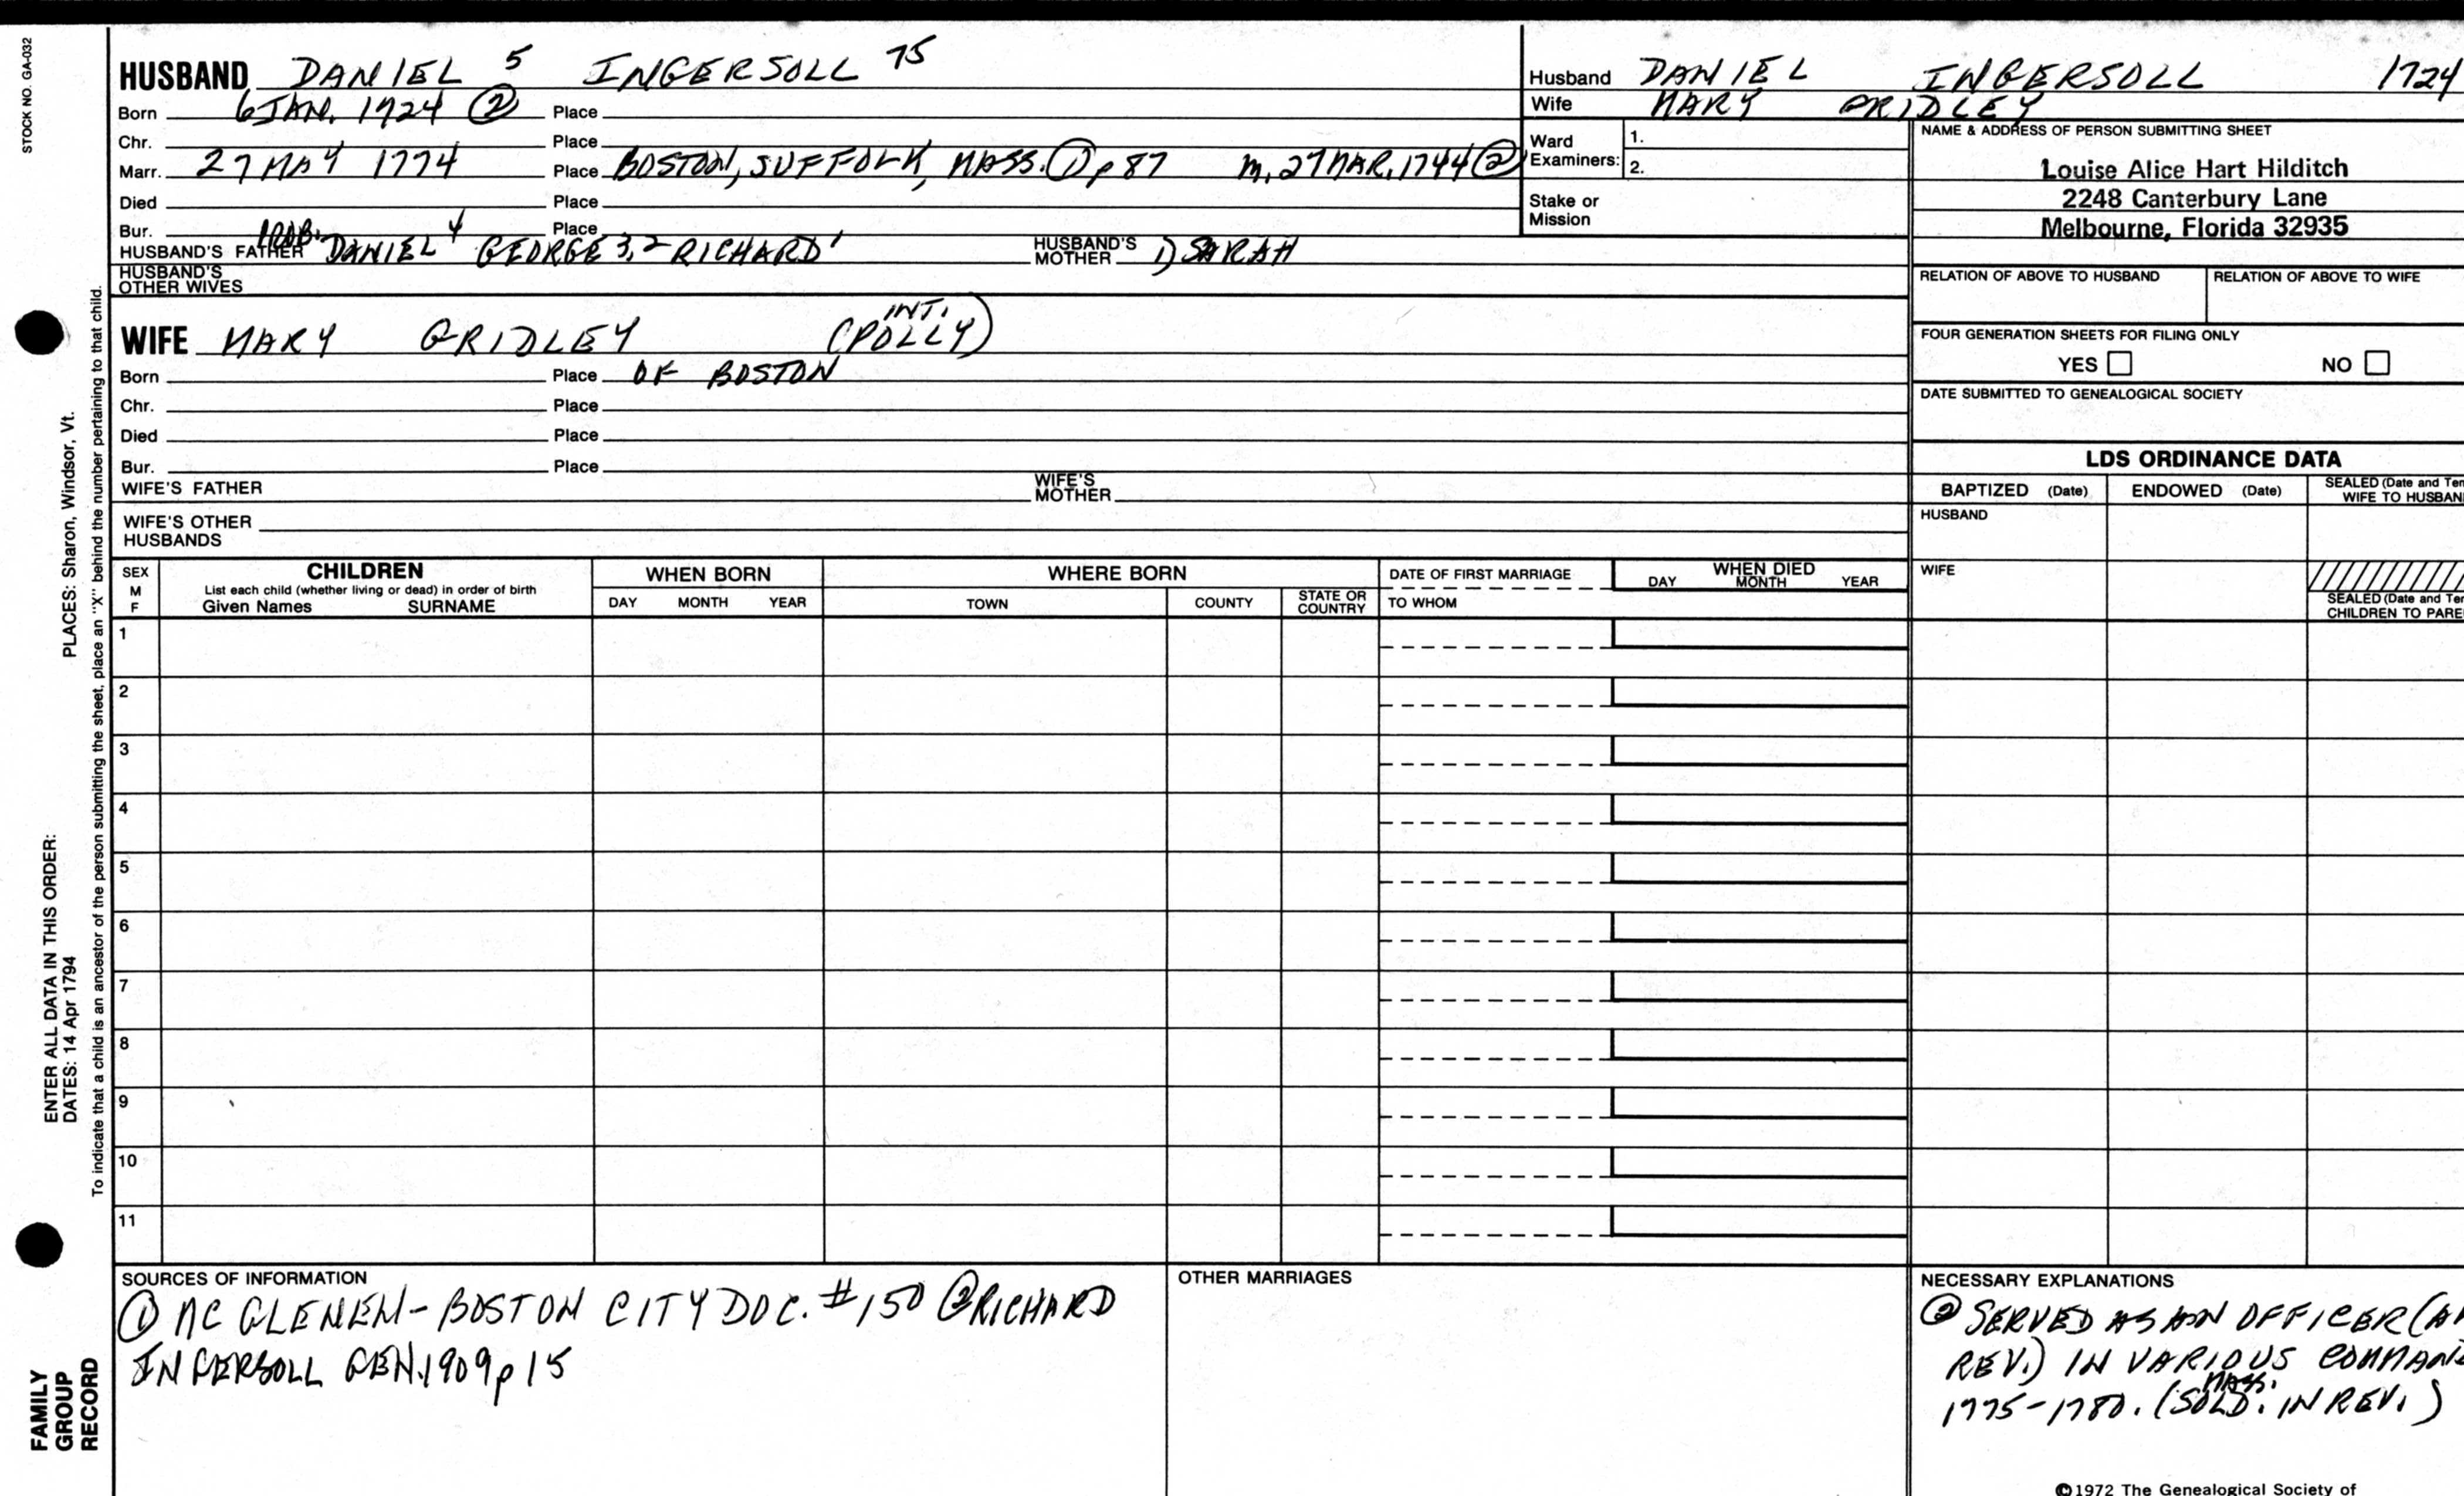 STOCK NO. GA-032
HUSBAND DANIEL 5 INGERSOLL 75
Born 6 JAN. 1724 ② Place
Chr. Place
Marr. 27 MAY 1774 Place BOSTON, SUFFOLK, MASS. ① p 87 m. 27 MAR. 1744 ②
Died Place
Bur. Place
HUSBAND'S FATHER PROB. DANIEL 4 GEORGE 3, 2 RICHARD 1 HUSBAND'S MOTHER 1) SARAH
HUSBAND'S OTHER WIVES
WIFE MARY GRIDLEY INT. (POLLY)
Born Place OF BOSTON
Chr. Place
Died Place
Bur. Place
WIFE'S FATHER WIFE'S MOTHER
WIFE'S OTHER HUSBANDS
Husband DANIEL INGERSOLL 1724
Wife MARY GRIDLEY
Ward Examiners: 1.
2.
Stake or Mission
NAME & ADDRESS OF PERSON SUBMITTING SHEET
Louise Alice Hart Hilditch
2248 Canterbury Lane
Melbourne, Florida 32935
RELATION OF ABOVE TO HUSBAND RELATION OF ABOVE TO WIFE
FOUR GENERATION SHEETS FOR FILING ONLY
YES NO
DATE SUBMITTED TO GENEALOGICAL SOCIETY
LDS ORDINANCE DATA
BAPTIZED (Date) ENDOWED (Date) SEALED (Date and Tem
WIFE TO HUSBAN
HUSBAND
WIFE
SEALED (Date and Tem
CHILDREN TO PARE
SEX
M
F
CHILDREN
List each child (whether living or dead) in order of birth
Given Names SURNAME
WHEN BORN
DAY MONTH YEAR
WHERE BORN
TOWN COUNTY STATE OR COUNTRY
DATE OF FIRST MARRIAGE
TO WHOM
WHEN DIED
DAY MONTH YEAR
1
2
3
4
5
6
7
8
9
10
11
SOURCES OF INFORMATION
① MC GLENEN - BOSTON CITY DOC. #150 ② RICHARD
INGERSOLL GEN. 1909 p 15
OTHER MARRIAGES
NECESSARY EXPLANATIONS
② SERVED AS AN OFFICER (AM
REV.) IN VARIOUS COMMAND
1775-1780. (MASS. SOLD. IN REV.)
©1972 The Genealogical Society of
PLACES: Sharon, Windsor, Vt.
ENTER ALL DATA IN THIS ORDER:
DATES: 14 Apr 1794
To indicate that a child is an ancestor of the person submitting the sheet, place an "X" behind the number pertaining to that child.
FAMILY
GROUP
RECORD